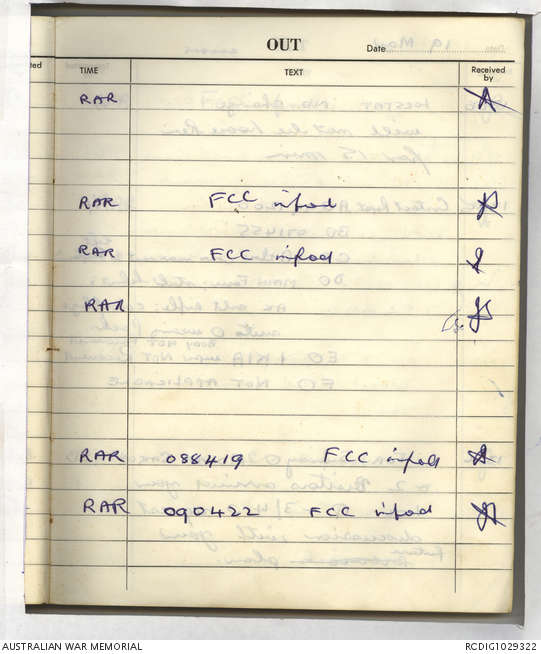 OUT
Date
TIME TEXT Received by
RAR
RAR FCC infod
RAR FCC infod
RAR
RAR 088419 FCC infod
RAR 090422 FCC infod
AUSTRALIAN WAR MEMORIAL RCDIG1029322